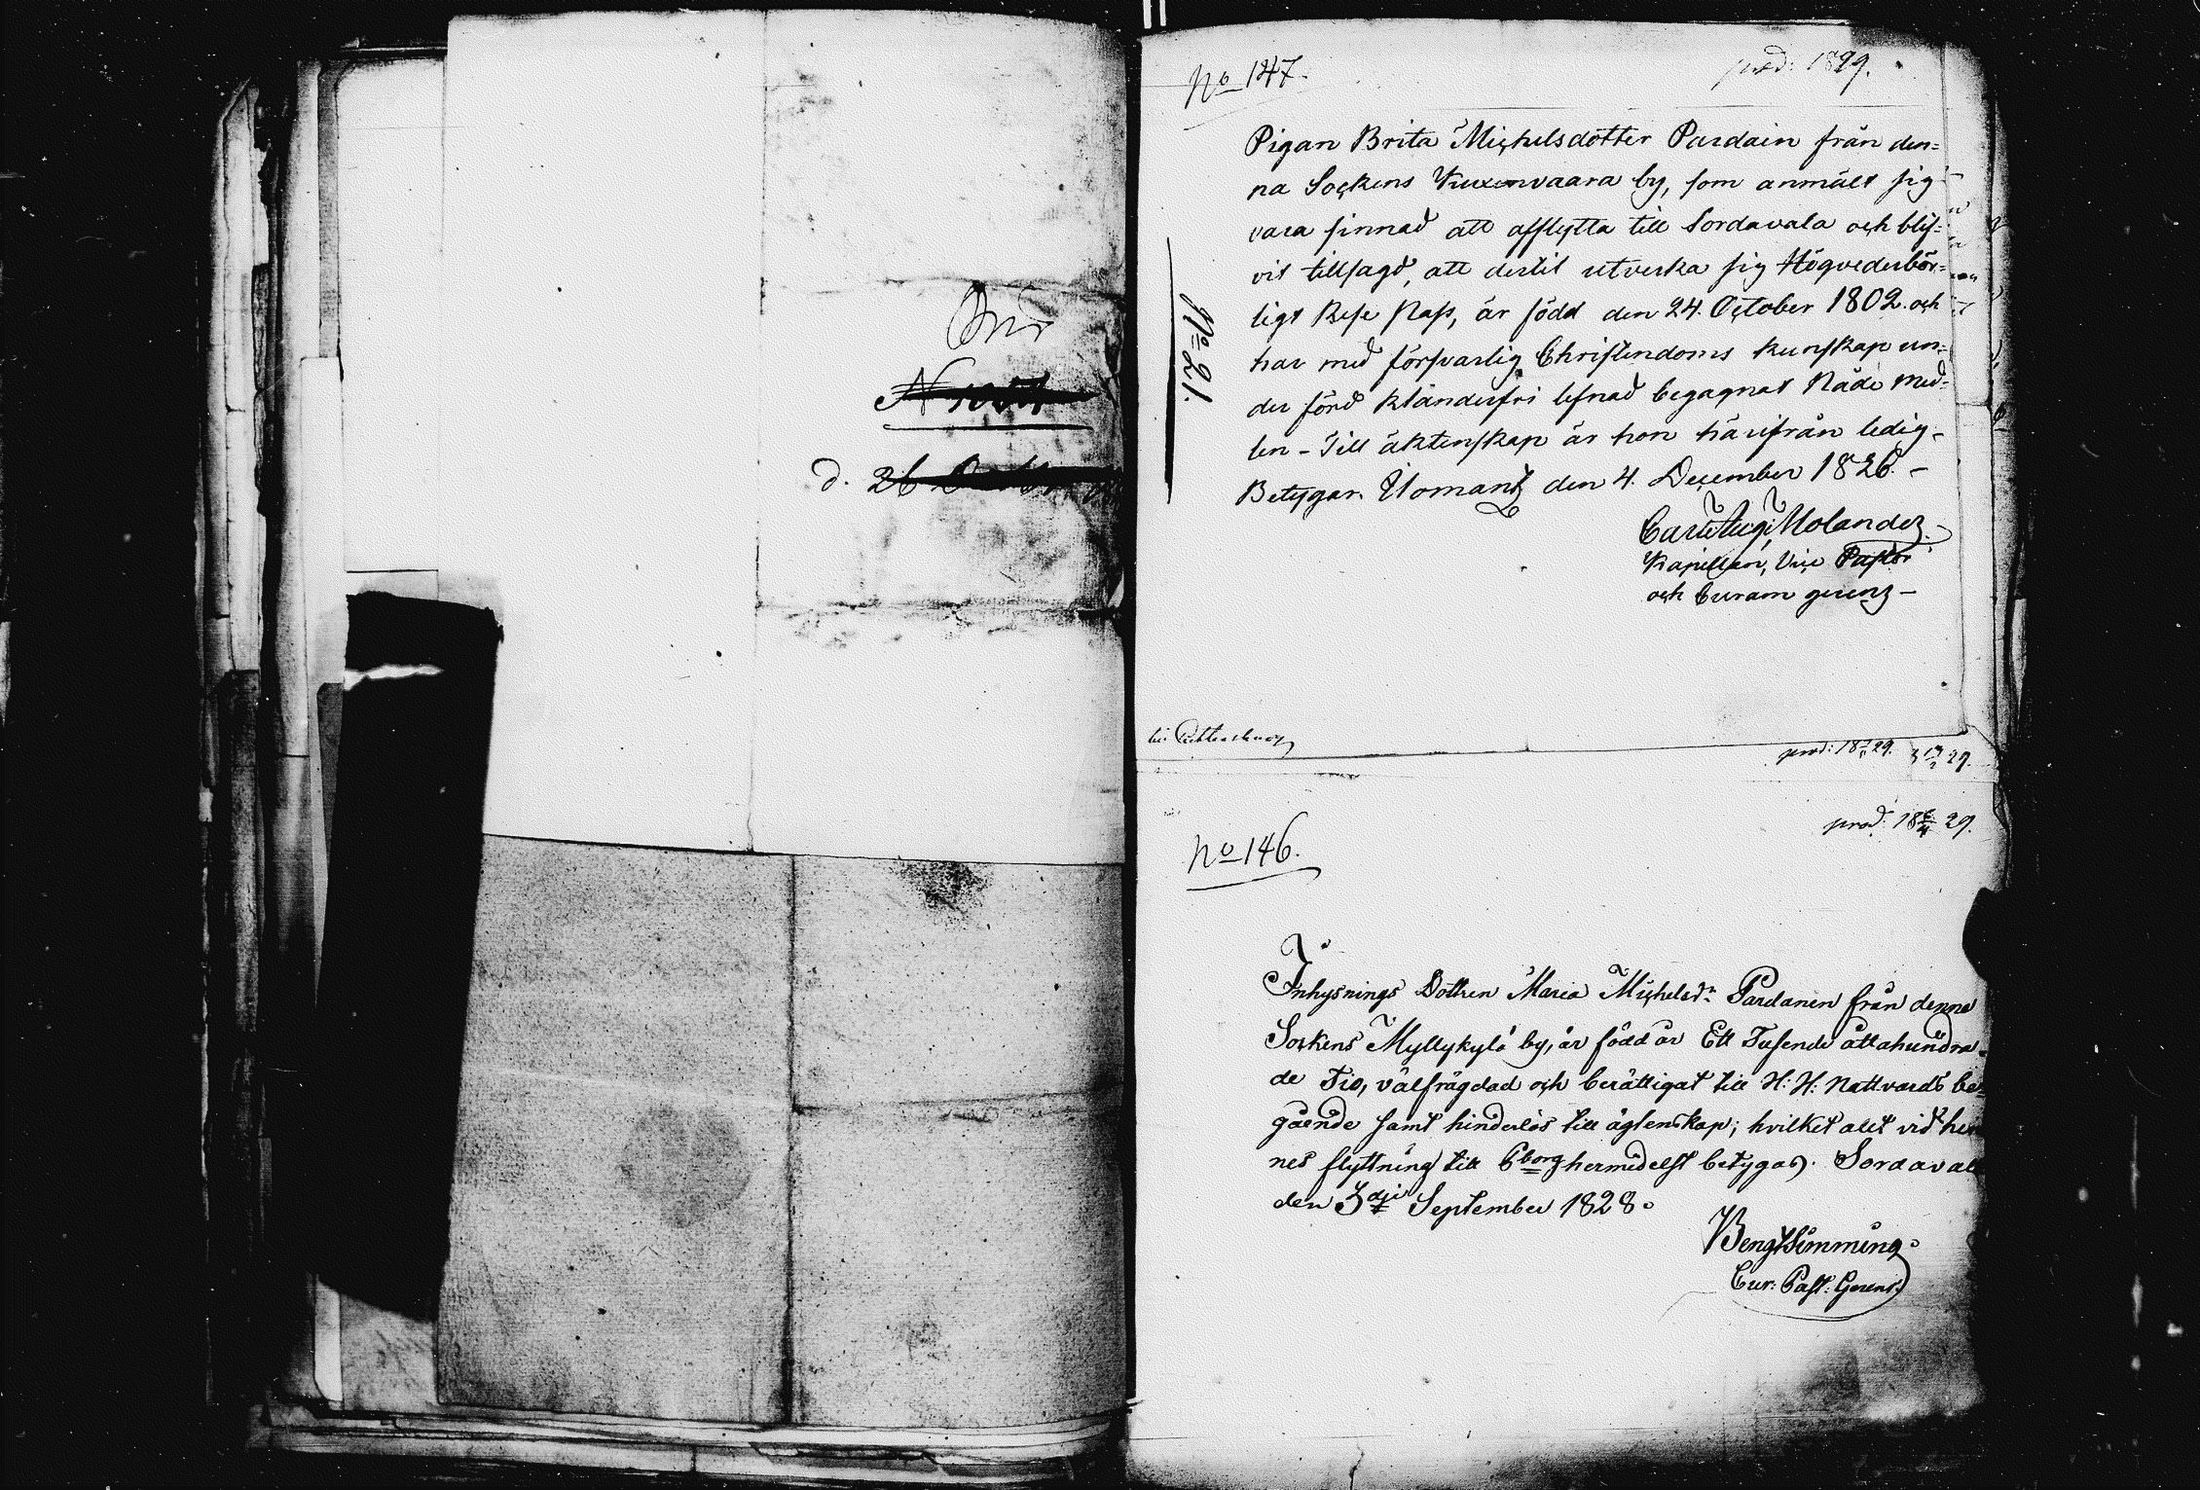 d. 26
No 147.
prod: 1829.
Pigan Brita Michelsdotter Pardain från den-
na Sockens vaara by, som anmält sig
vara sinnad att afflytta till Sordavala och blif-
vit tillsagd, att dertil utverka sig Högvederbör-
ligt Rese Pass, är född den 24. October 1802. och
har med försvarlig Christendoms kunskap un-
der förd klanderfri lefnad begagnat Nåde med-
len - Till äktenskap är hon härifrån ledig,
Betygar. Ilomantz den 4. December 1826. -
Carl Aug. Molander
Kapellan, Vice Pastor
och Curam gerens -
No 21.
prod: 29.
29.
prod: 18 6/4 29.
No 146.
Inhysnings Dottren Maria Michelsdr Pardanen från denna
Sockens Myllykylä by, är född år Ett Tusende åttahundra-
de Tio, välfrägdad och berättigat till H: H: Nattvards be-
gående samt hinderlös till ägtenskap; hvilket allt vid hen
nes flyttning till Pborg hermedelst betygas. Sordavala
den 3dje September 1828.
Bengt Simming.
Cur: Past: Gerens.